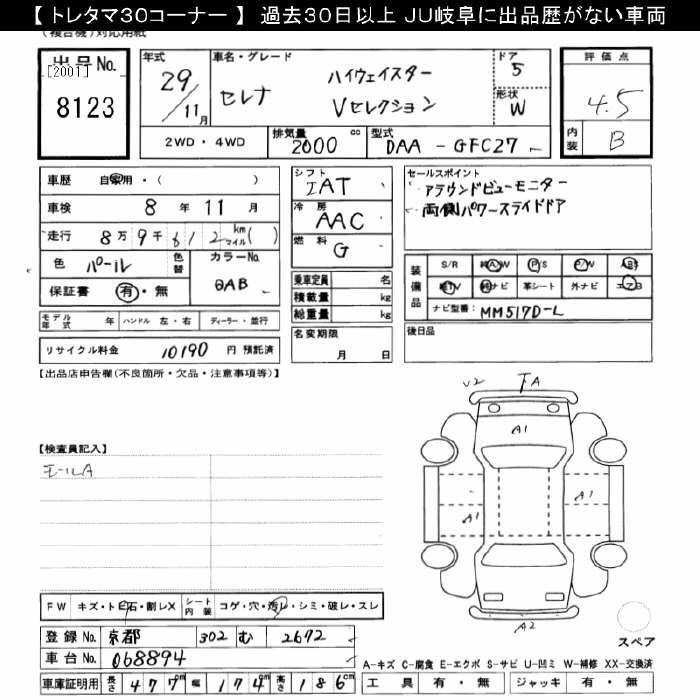 【 トレタマ30コーナー 】 過去30日以上 JU岐阜に出品歴がない車両
(複合機)対応用紙
出品No.
[2001]
8123
年式
29/11月
車名・グレード
セレナ ハイウェイスター
Vセレクション
ドア
5
形状
W
評価点
4.5
内装
B
2WD・4WD
排気量
2000 cc
型式
DAA - GFC27
車歴 自家用・( )
車検 8年 11月
走行 8万9千612 km マイル( )
色 パール 色替
カラーNo. QAB
保証書 有・無
モデル年式 年 ハンドル 左・右 ディーラー・並行
リサイクル料金 10190 円 預託済
シフト
IAT
冷房
AAC
燃料
G
乗車定員 名
積載量 kg
総重量 kg
名変期限
月 日
セールスポイント
アラウンドビューモニター
両側パワースライドドア
装備品
S/R 純AW P/S P/W ABS
純TV 純ナビ 革シート 外ナビ エアB
ナビ型番: MM517D-L
後日品
【出品店申告欄(不良箇所・欠品・注意事項等)】
【検査員記入】
モールA
V2 FA
A1
A1
A1
A2
スペア
FW キズ・トビ石・割レX シート内装 コゲ・穴・汚レ・シミ・破レ・スレ
登録No. 京都 302 む 2672
車台No. 068894
車庫証明用 長さ 477cm 幅 174cm 高さ 186cm
A-キズ C-腐食 E-エクボ S-サビ U-凹ミ W-補修 XX-交換済
工具 有・無 ジャッキ 有・無